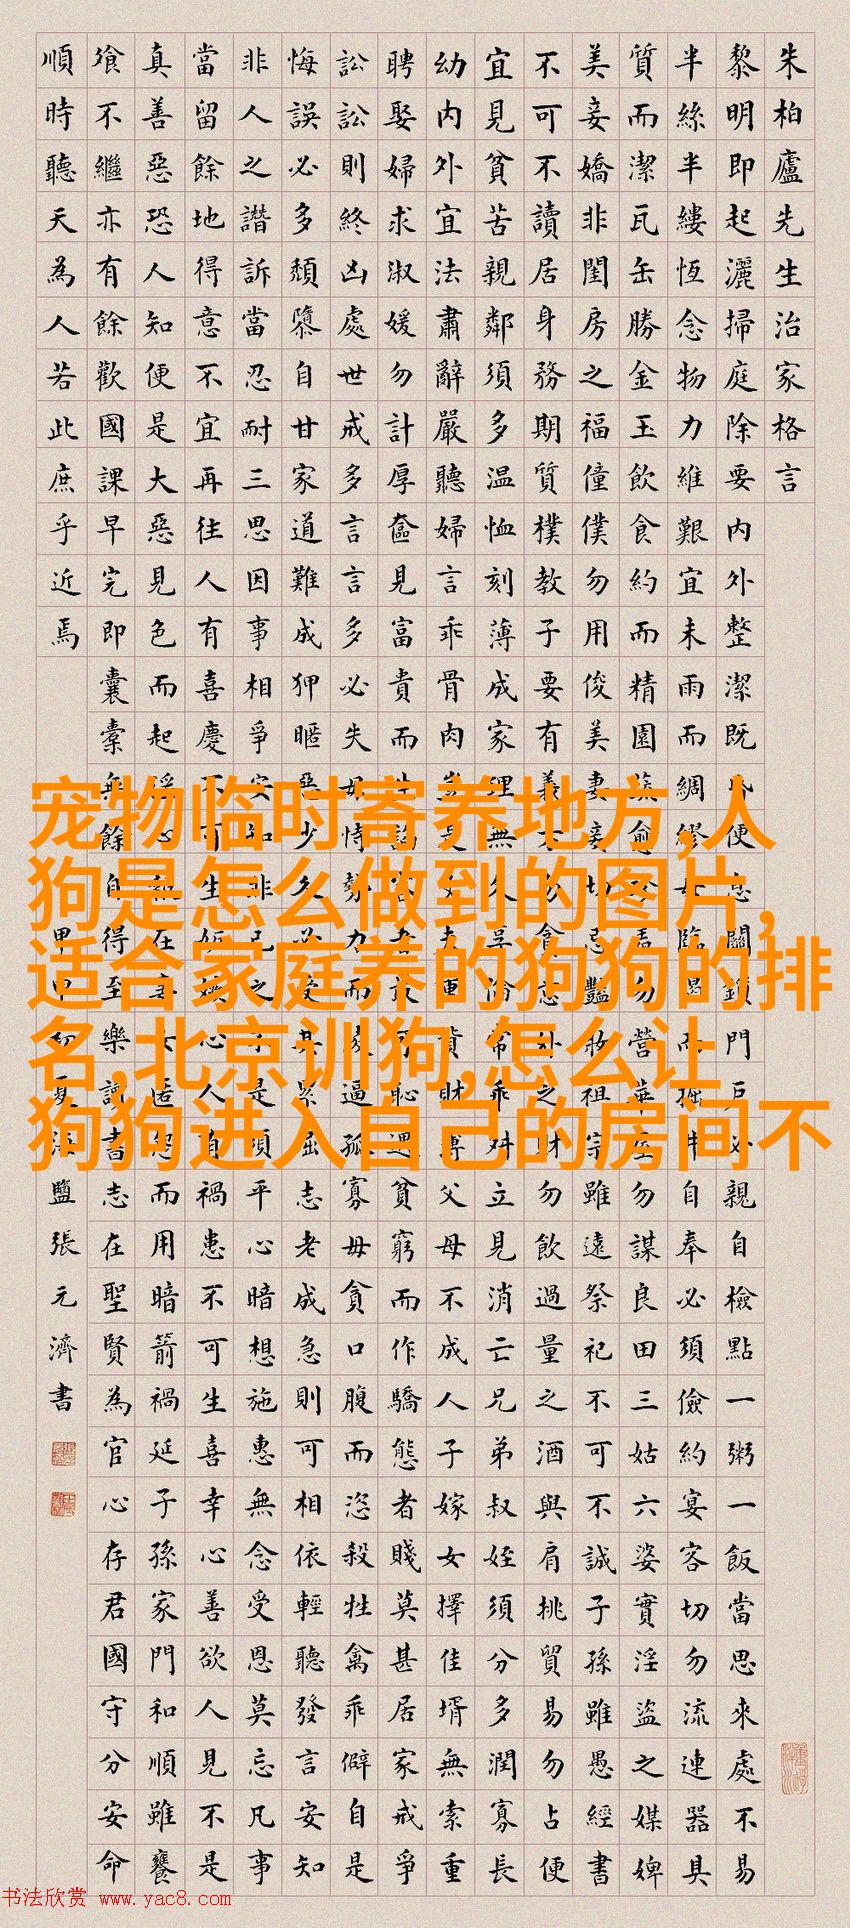 朱柏廬先生治家格言
黎明即起灑掃庭除要內外整潔既昏便息關鎖門戶必親自檢點一粥一飯當思來處不易
半絲半縷恆念物力維艱宜未雨而綢繆毋臨渴而掘井自奉必須儉約宴客切勿流連器具
質而潔瓦缶勝金玉飲食約而精園蔬愈珍勿營華屋勿謀良田三姑六婆實淫盜之媒婢
美妾嬌非閨房之福僮僕勿用俊美妻妾切忌豔妝祖宗雖遠祭祀不可不誠子孫雖愚經書
不可不讀居身務期質樸教子要有義方勿貪意外之財勿飲過量之酒與肩挑貿易勿占便
宜見貧苦親鄰須多温恤刻薄成家理無久享倫常乖舛立見消亡兄弟叔姪須分多潤寡長
幼內外宜法肅辭嚴聽婦言乖骨肉豈是丈夫重貲財薄父母不成人子嫁女擇佳壻無索重
聘娶婦求淑媛勿計厚奩見富貴而生諂容者最可恥遇貧窮而作驕態者賤莫甚居家戒爭
訟訟則終凶處世戒多言言多必失毋恃勢力而凌逼孤寡毋貪口腹而恣殺牲禽乖僻自是
悔誤必多頹隳自甘家道難成狎暱惡少久必受其累屈志老成急則可相依輕聽發言安知
非人之譖訴當忍耐三思因事相爭安知非己之不是須平心暗想施惠無念受恩莫忘凡事
當留餘地得意不宜再往人有喜慶不可生妒嫉心人有禍患不可生喜幸心善欲人見不是
真善惡恐人知便是大惡見色而起淫心報在妻女匿怨而用暗箭禍延子孫家門和順雖饔
飧不繼亦有餘歡國課早完即囊橐無餘自得至樂讀書志在聖賢為官心存君國守分安命
順時聽天為人若此庶乎近焉
甲申初夏海鹽張元濟書
宠物临时寄养地方,人
狗是怎么做到的图片,
适合家庭养的狗狗的排
名,北京训狗,怎么让
狗狗进入自己的房间不
书法欣赏 www.yac8.com